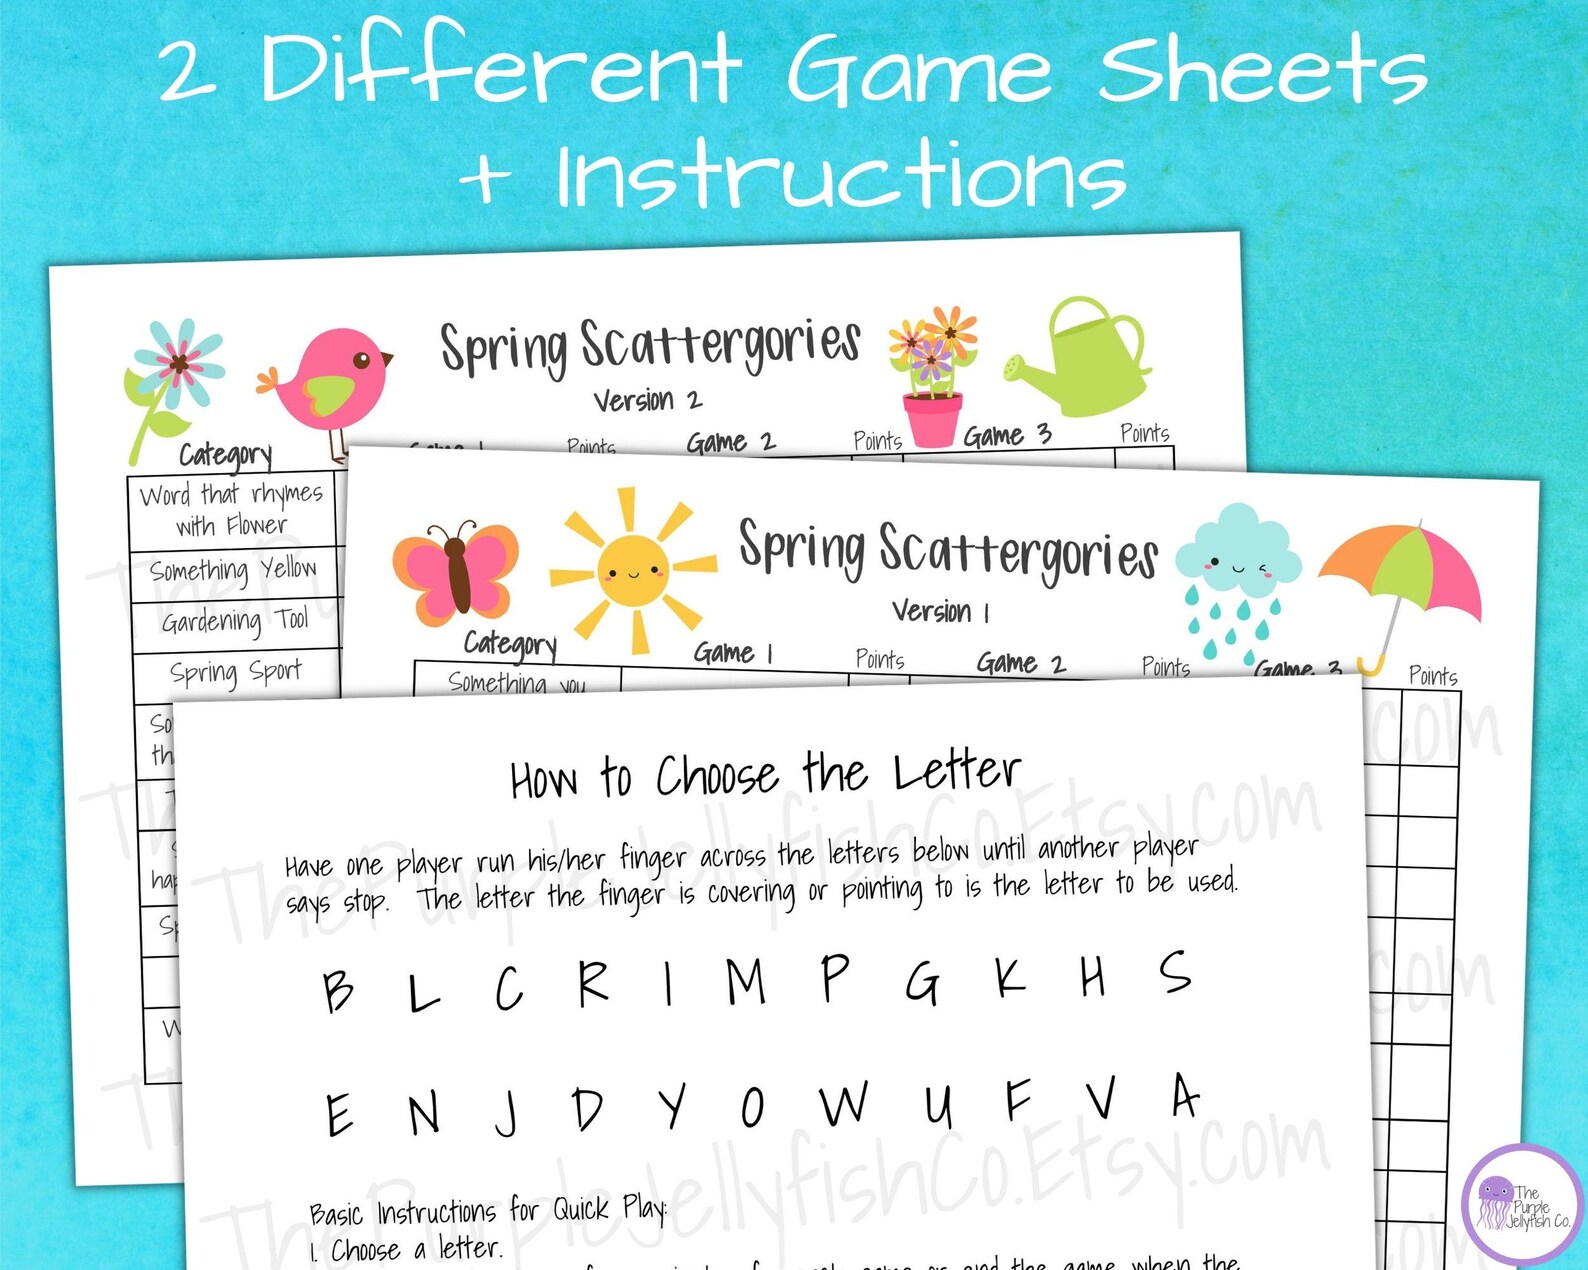 2 Different Game Sheets
+ Instructions
Spring Scattergories
Version 2
Category
Game 1
Points
Game 2
Points
Game 3
Points
Word that rhymes
with Flower
Something Yellow
Gardening Tool
Spring Sport
Spring Scattergories
Version 1
Category
Game 1
Points
Game 2
Points
Game 3
Points
Something you
How to Choose the Letter
Have one player run his/her finger across the letters below until another player
says stop. The letter the finger is covering or pointing to is the letter to be used.
B L C R I M P G K H S
E N J D Y O W U F V A
Basic Instructions for Quick Play:
1. Choose a letter.
game or end the game when the
ThePurpleJellyfishCo.Etsy.com
ThePurpleJellyfishCo.Etsy.com
The
Purple
Jellyfish Co.